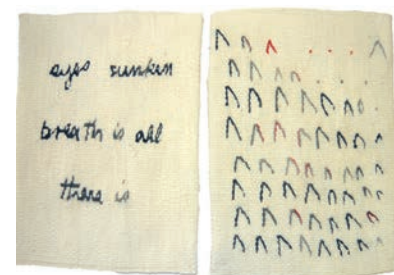 eyes sunken
breath is all
there is